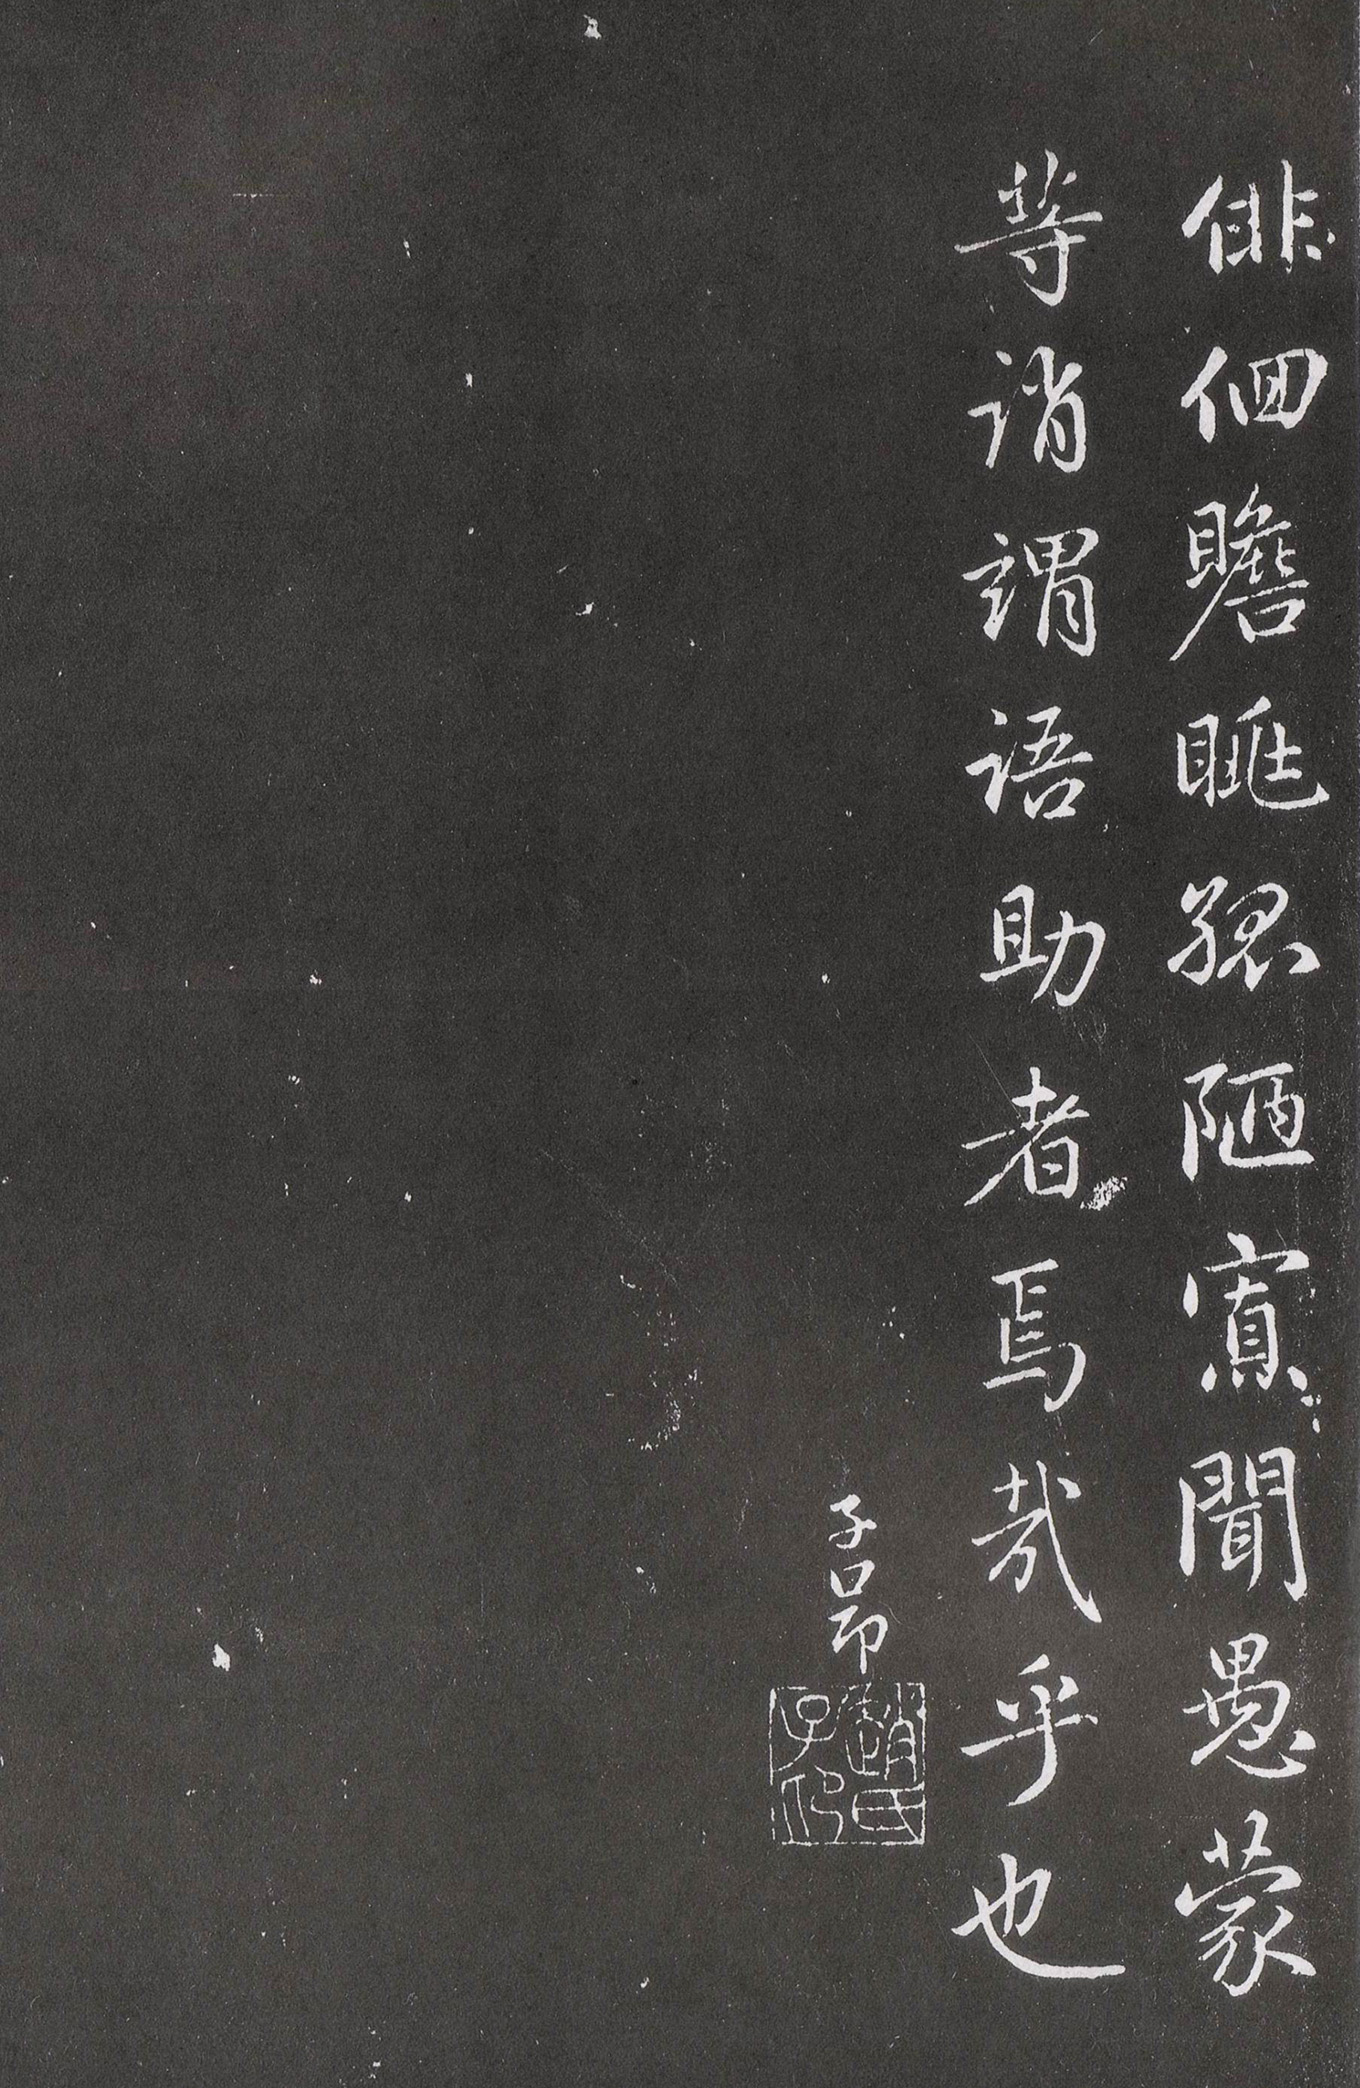 俳佪瞻眺孤陋寡聞愚蒙
等誚謂語助者焉哉乎也
子昂
趙氏子印